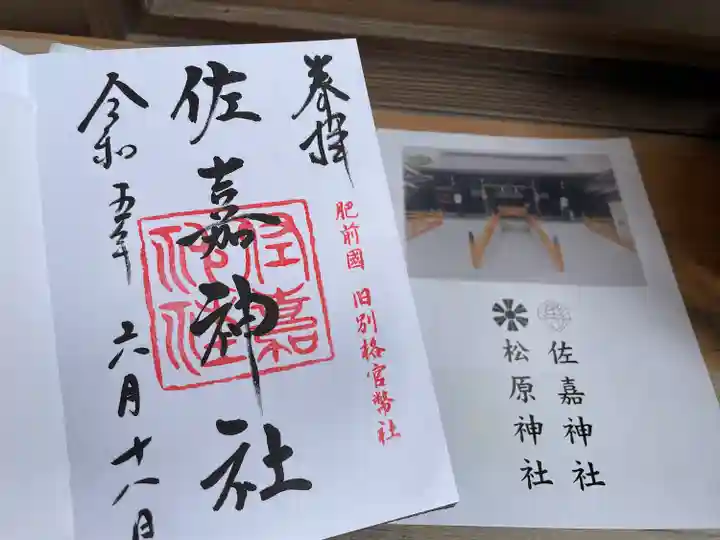 奉拝
肥前國 旧別格官幣社
佐嘉神社
令和五年 六月十八日
佐嘉神社
松原神社